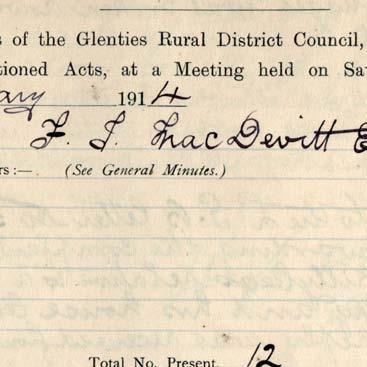 s of the Glenties Rural District Council,
tioned Acts, at a Meeting held on Sa
ary 1914
F. J. MacDevitt E
rs :— (See General Minutes.)
Total No. Present, 12